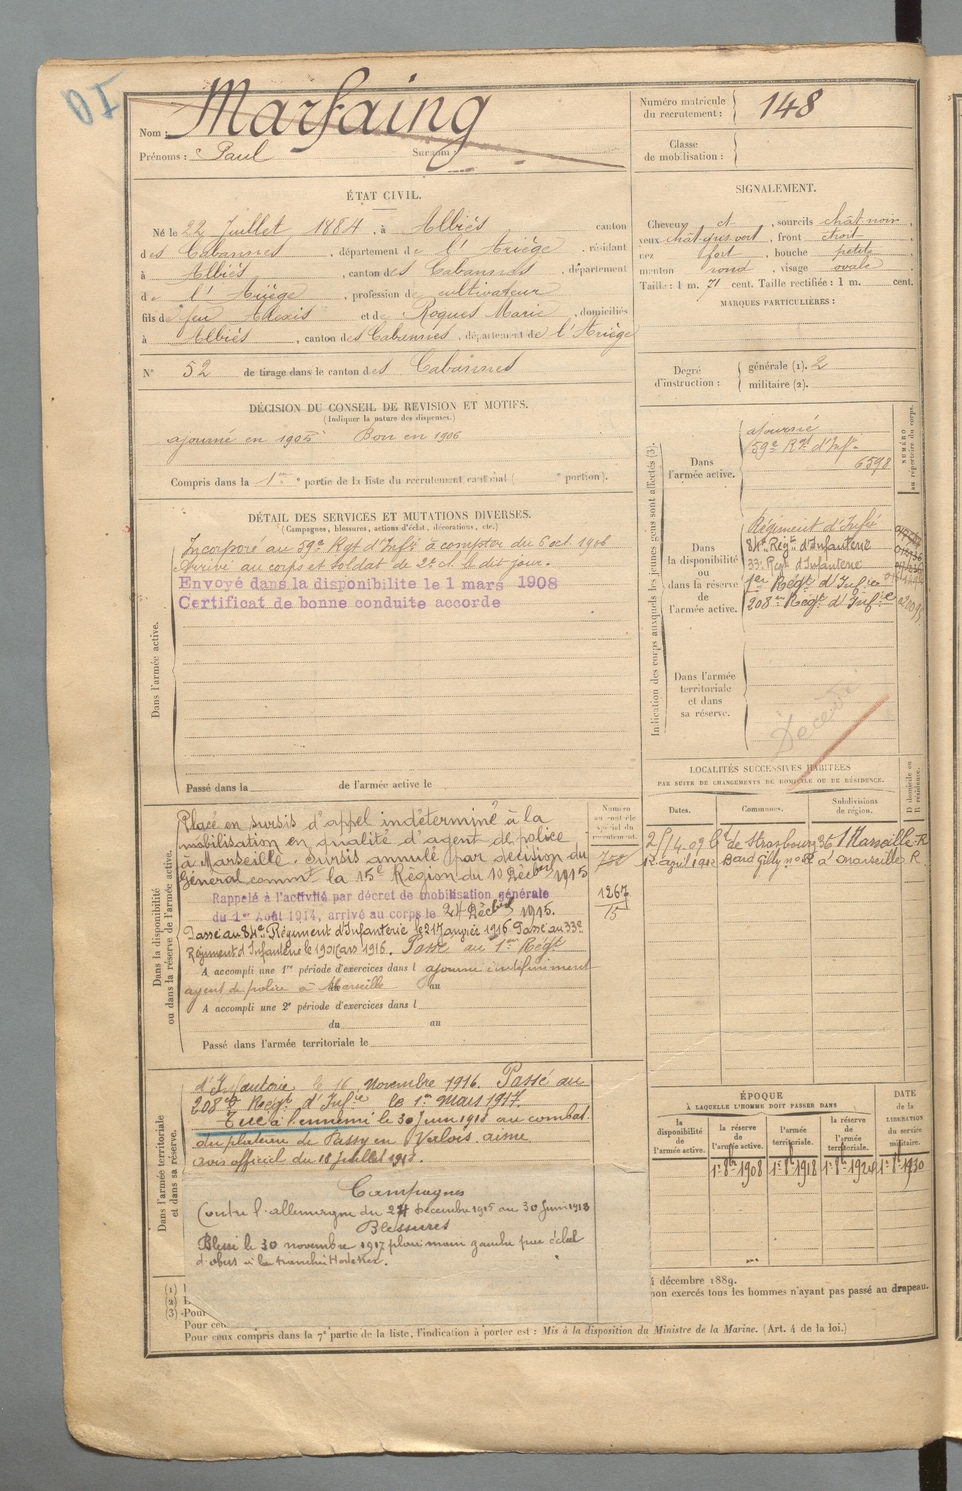 Nom : Marfaing
Prénoms : Paul Surnom :
Numéro matricule du recrutement : 148
Classe de mobilisation :
ÉTAT CIVIL.
Né le 22 Juillet 1884, à Albiès canton
des Cabannes, département de l'Ariège, résidant
à Albiès, canton des Cabannes, département
de l'Ariège, profession de cultivateur
fils de feu Alexis et de Roques Marie, domiciliés
à Albiès, canton des Cabannes, département de l'Ariège
N° 52 de tirage dans le canton des Cabannes
SIGNALEMENT.
Cheveux ct, sourcils chât noir,
yeux chât gris vert, front étroit,
nez fort, bouche petite,
menton rond, visage ovale
Taille : 1 m. 71 cent. Taille rectifiée : 1 m. cent.
MARQUES PARTICULIÈRES :
Degré d'instruction : générale (1). 2
militaire (2).
DÉCISION DU CONSEIL DE REVISION ET MOTIFS.
(Indiquer la nature des dispenses.)
ajourné en 1905 Bon en 1906
Compris dans la 1re partie de la liste du recrutement cantonal ( portion).
DÉTAIL DES SERVICES ET MUTATIONS DIVERSES.
(Campagnes, blessures, actions d'éclat, décorations, etc.)
Dans l'armée active.
Incorporé au 59e Rgt d'Infie à compter du 6 oct. 1906
Arrivé au corps et soldat de 2e cl. le dit jour.
Envoyé dans la disponibilite le 1 mars 1908
Certificat de bonne conduite accorde
Passé dans la de l'armée active le
Indication des corps auxquels les jeunes gens sont affectés (3).
NUMÉRO au répertoire du corps.
Dans l'armée active.
ajourné
59e Rt d'Infie
6598
Dans la disponibilité ou dans la réserve de l'armée active.
Régiment d'Infie
84e Régt d'Infanterie
33e Régt d'Infanterie
1er Régt d'Infie
208me Régt d'Infie
Dans l'armée territoriale et dans sa réserve.
Décédé
LOCALITÉS SUCCESSIVES HABITÉES
PAR SUITE DE CHANGEMENTS DE DOMICILE OU DE RÉSIDENCE.
Dates. Communes. Subdivisions de région. D domicile ou R résidence.
Bd de Strasbourg 36 Marseille R
Bard Gilly no 82 à Marseille R
Dans la disponibilité ou dans la réserve de l'armée active.
Placé en sursis d'appel indéterminé à la
mobilisation en qualité d'agent de police
à Marseille. Sursis annulé par décision du
Général commt la 15e Région du 10 Décbre 1915
Rappelé à l'activité par décret de mobilisation générale
du 1er Août 1914, arrivé au corps le 24 Décbre 1915.
Passé au 84e Régiment d'Infanterie le 21 Janvier 1916. Passé au 33e
Régiment d'Infanterie le 19 Mars 1916. Passé au 1er Régt
A accompli une 1re période d'exercices dans l ajourné indéfiniment
agent de police à Marseille au
A accompli une 2e période d'exercices dans l
du au
Passé dans l'armée territoriale le
1267
15
Dans l'armée territoriale et dans sa réserve.
d'Infanterie le 16 Novembre 1916. Passé au
208e Régt d'Infie le 1er mars 1917.
Tué à l'ennemi le 30 Juin 1918 au combat
du plateau de Passy en Valois aisne
avis officiel du 18 Juillet 1918.
Campagnes
Contre l'allemagne du 24 décembre 1915 au 30 Juin 1918
Blessures
Blessé le 30 novembre 1917 plaie main gauche par éclat
d'obus à la tranchée
ÉPOQUE
À LAQUELLE L'HOMME DOIT PASSER DANS
la disponibilité de l'armée active. la réserve de l'armée active. l'armée territoriale. la réserve de l'armée territoriale.
DATE de la LIBÉRATION du service militaire.
1er 8bre 1908 1er 8bre 1918 1er 8bre 1924 1er 8bre 1930
décembre 1889.
non exercés tous les hommes n'ayant pas passé au drapeau.
(1)
(2)
(3) Pour
Pour
Pour ceux compris dans la 7e partie de la liste, l'indication à porter est : Mis à la disposition du Ministre de la Marine. (Art. 4 de la loi.)